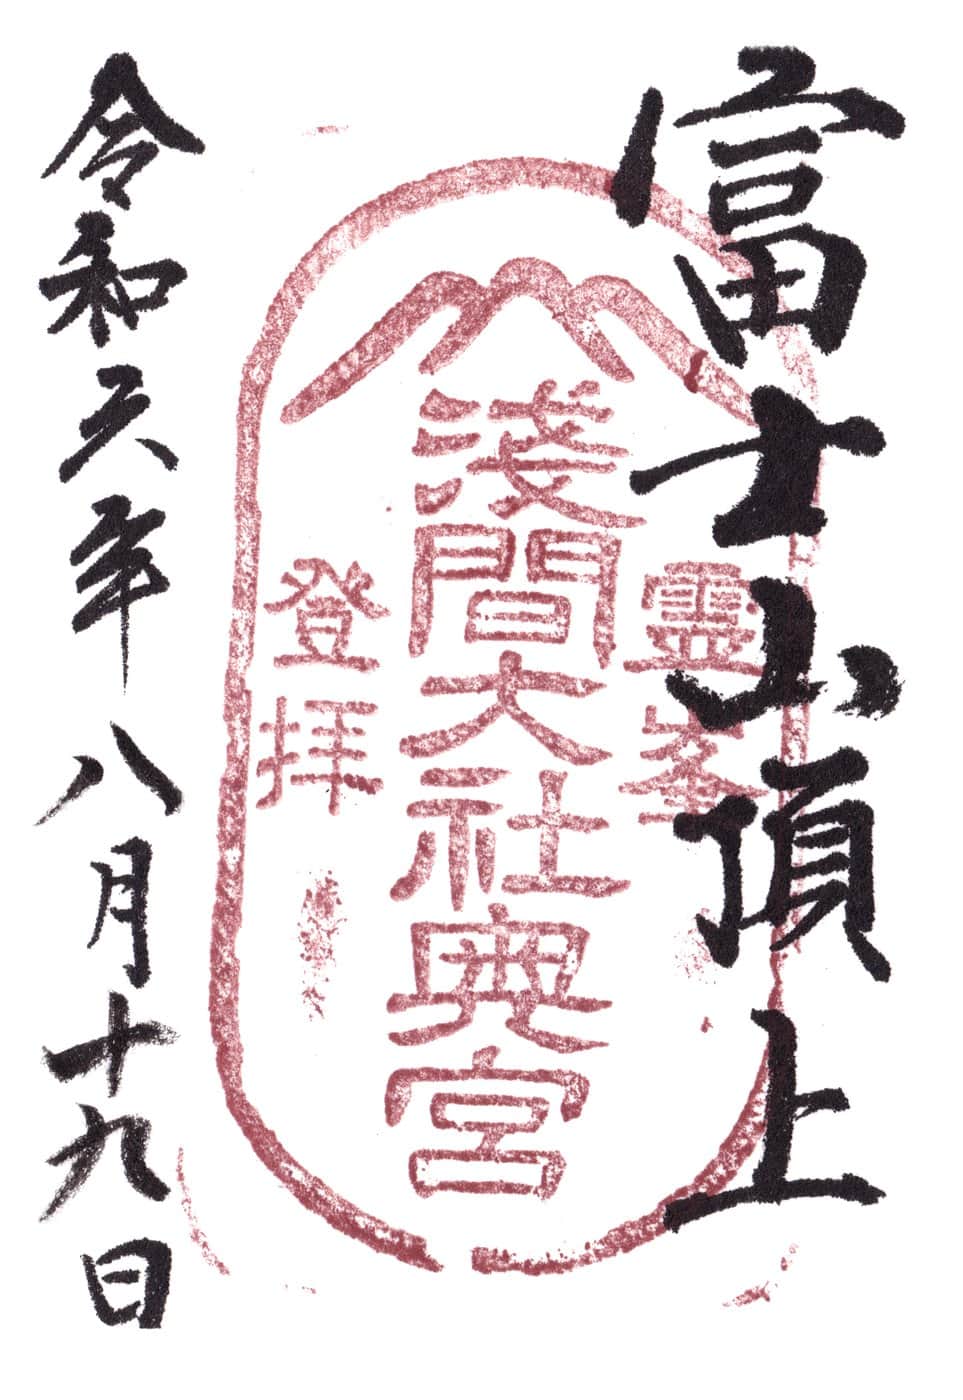 富士山頂上
霊峯
浅間大社奥宮
登拝
令和六年八月十九日